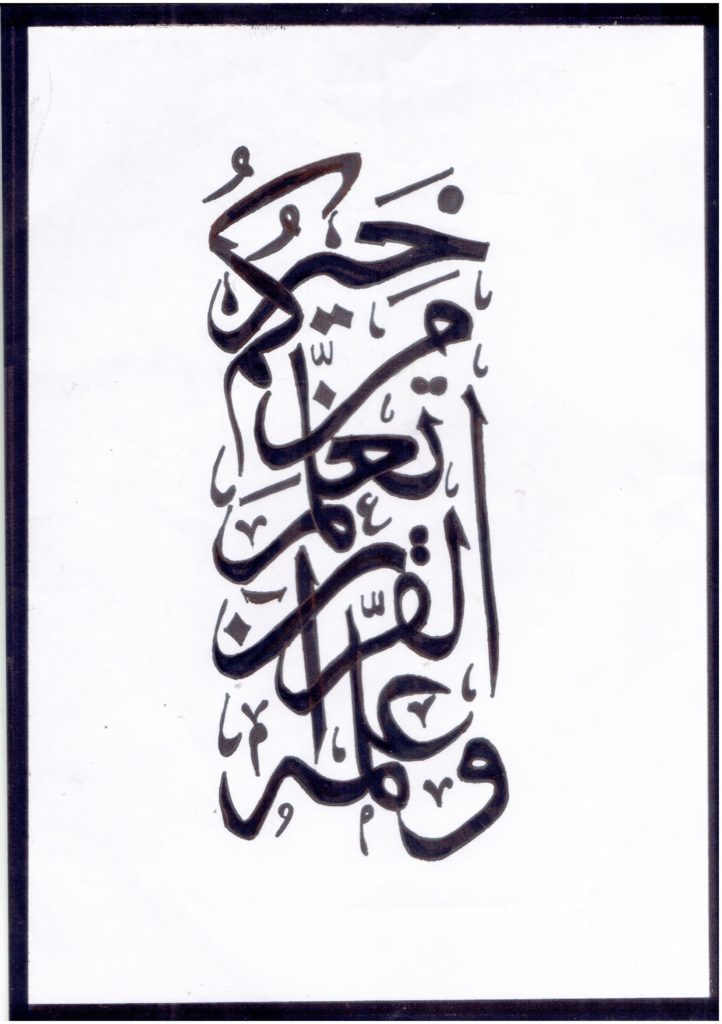 خيركم
من
تعلم
القرآن
وعلمه